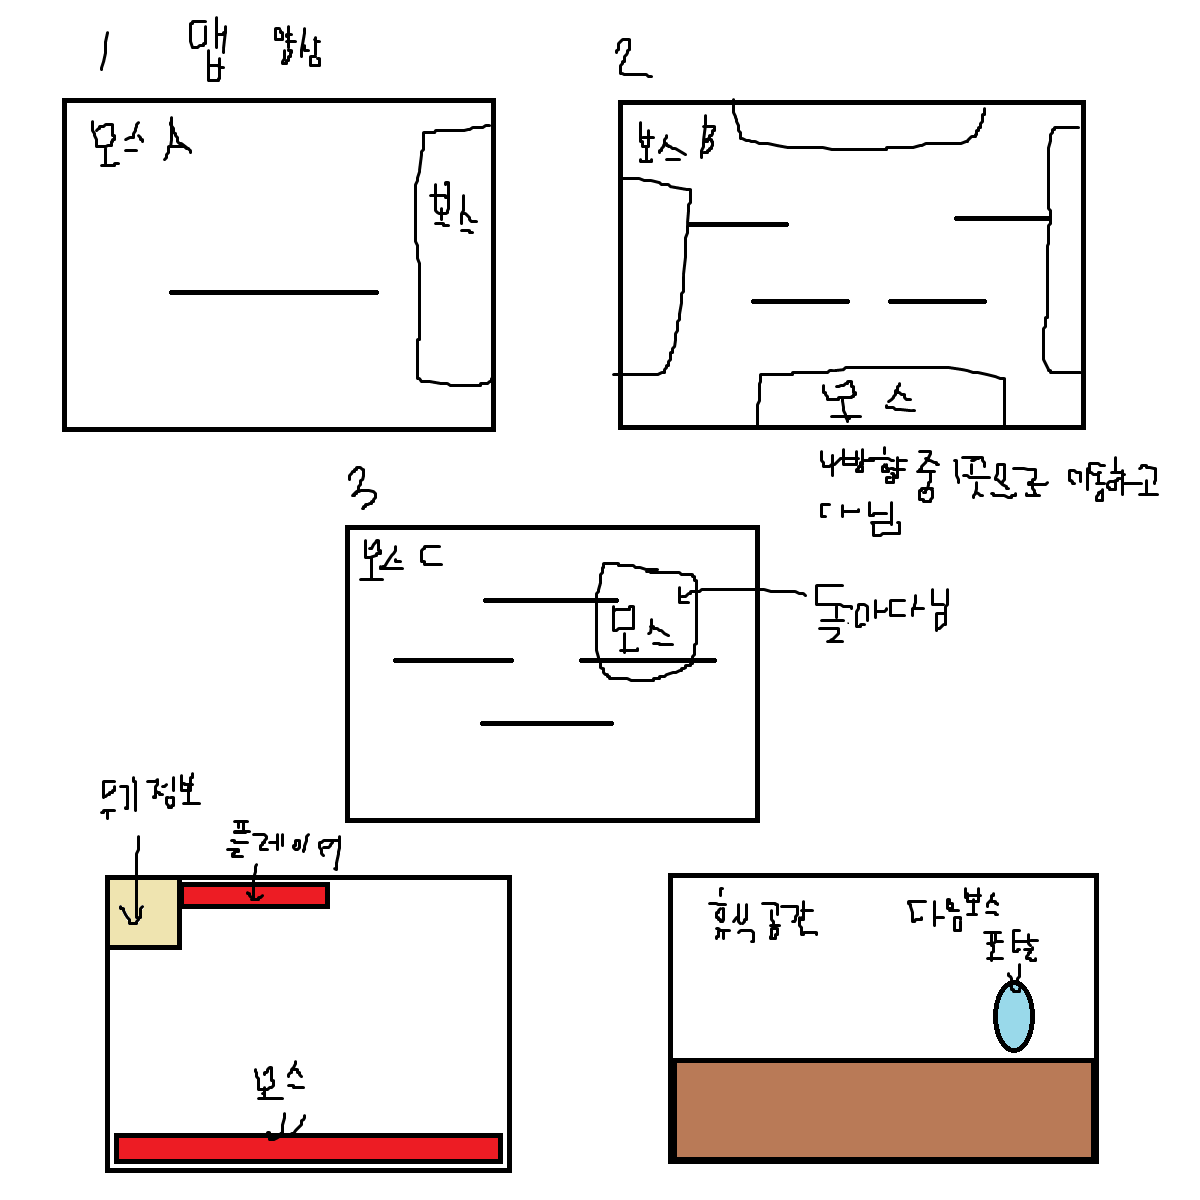 1 맵 양상
보스 A
보스
2
보스 B
보스
4방향 중 1곳으로 이동하고
다님
3
보스 C
보스
돌아다님
무기 정보
플레이어
보스
휴식 공간
다음보스
포탈